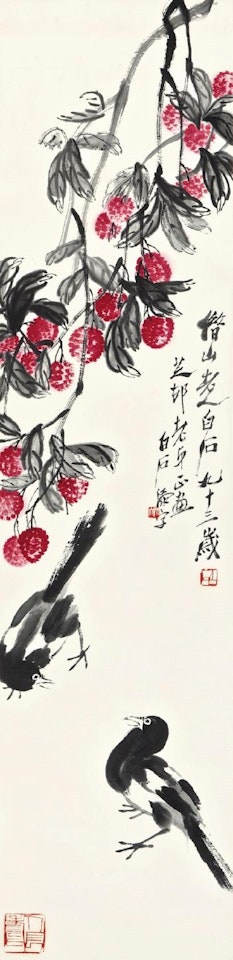 借山老人白石九十三歲
芝邨老弟正畫
白石添字